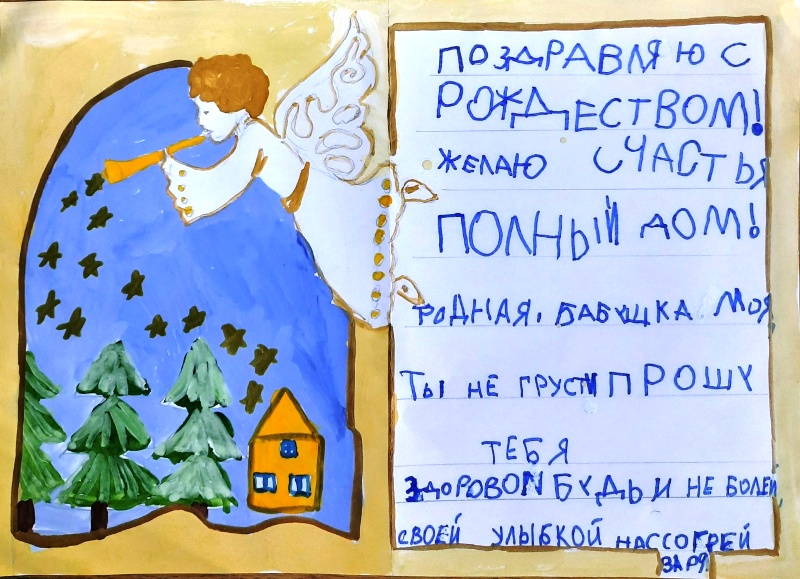 ПОЗДРАВЛЯЮ С
РОЖДЕСТВОМ!
ЖЕЛАЮ СЧАСТЬЯ
ПОЛНЫЙ ДОМ!
РОДНАЯ, БАБУШКА МОЯ
ТЫ НЕ ГРУСТИ ПРОШУ
ТЕБЯ
ЗДОРОВОЙ БУДЬ И НЕ БОЛЕЙ,
СВОЕЙ УЛЫБКОЙ НАССОГРЕЙ
ЗАРЯ.